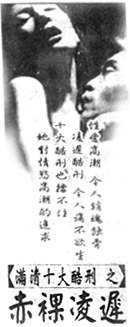 性愛高潮 令人銷魂蝕骨
凌遲酷刑 令人痛不欲生
十大酷刑也擋不住
她對情慾高潮的追求
滿清十大酷刑 之
赤裸凌遲